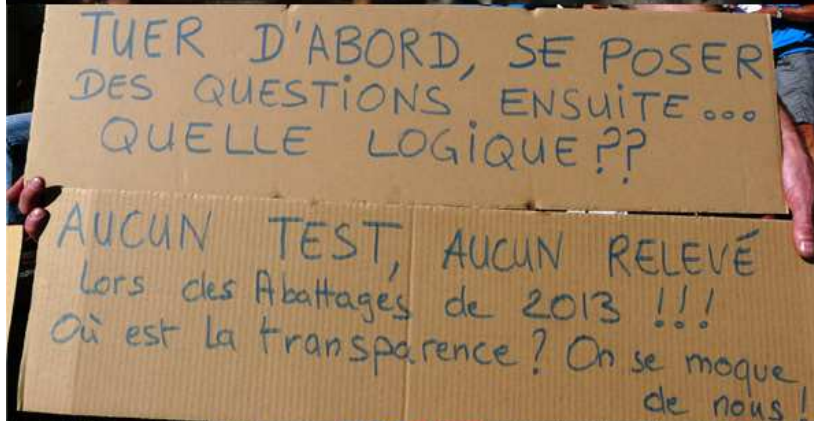 TUER D'ABORD, SE POSER
DES QUESTIONS ENSUITE...
QUELLE LOGIQUE??
AUCUN TEST, AUCUN RELEVÉ
Lors des Abattages de 2013 !!!
Où est la transparence? On se moque
de nous!